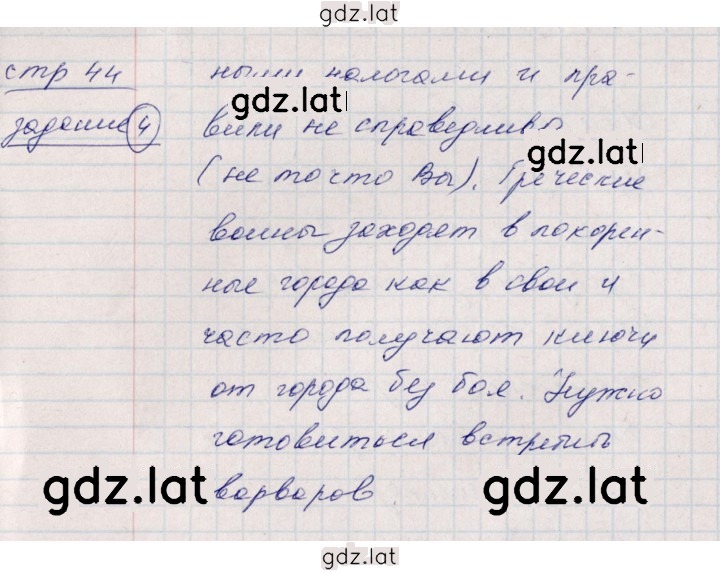 gdz.lat
стр 44
задание 4
ными налогами и пра-
gdz.lat
вили не справедливо
gdz.lat
(не то что Вы). Греческие
воины заходят в покорен-
ные города как в свои и
часто получают ключи
от города без боя. Нужно
готовиться встретить
gdz.lat
варваров
gdz.lat
gdz.lat